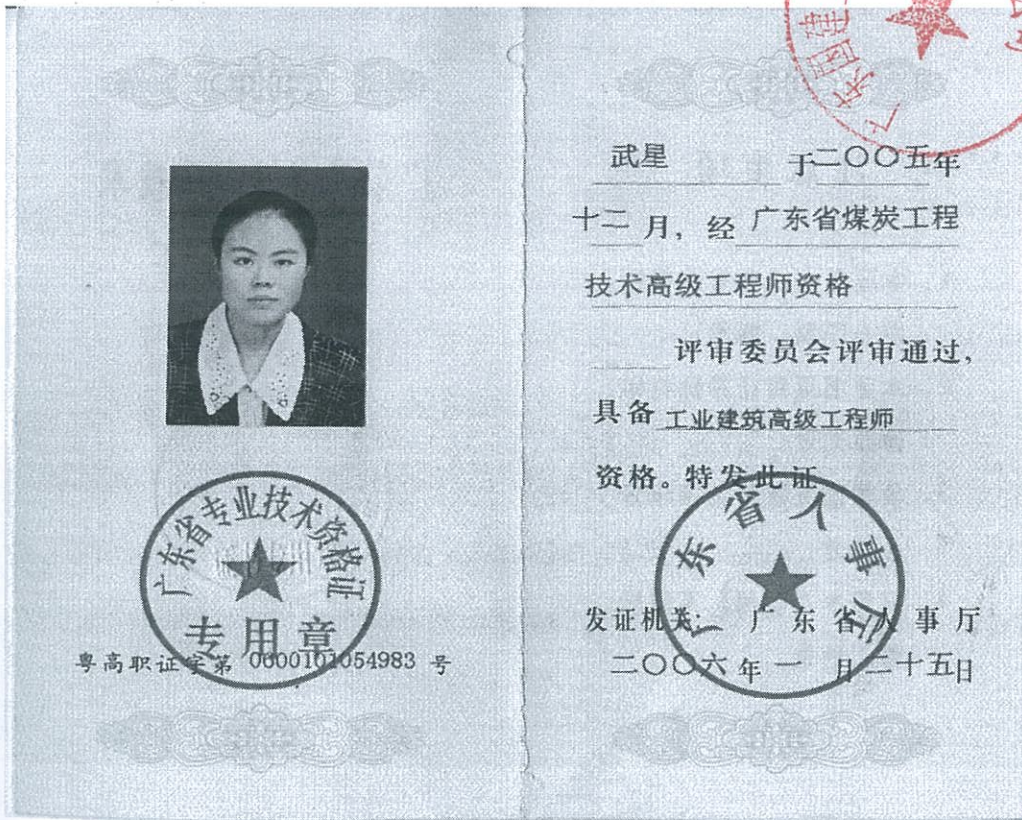 广东省专业技术资格证
专用章
粤高职证字第 0000101054983 号
广东国建
武星 于二〇〇五年
十二月，经 广东省煤炭工程
技术高级工程师资格
评审委员会评审通过，
具备 工业建筑高级工程师
资格。特发此证
广东省人事厅
发证机关: 广东省人事厅
二〇〇六年一月二十五日